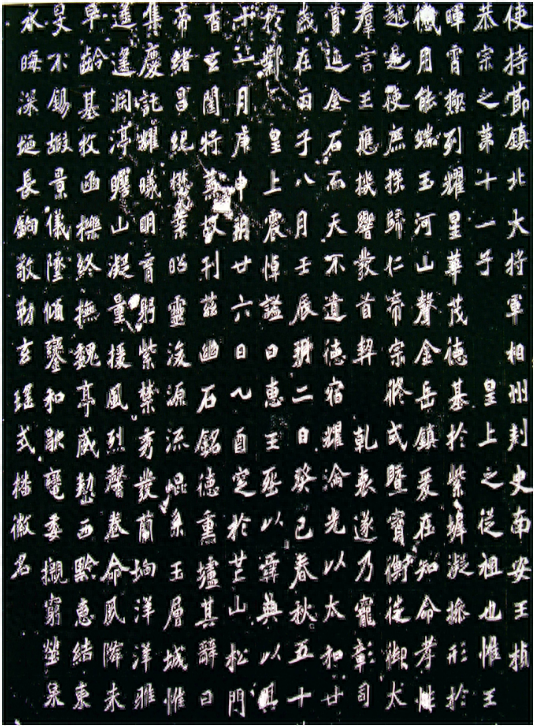 使持節鎮北大將軍相州刺史南安王楨
恭宗之第十一子 皇上之從祖也惟王
暉霄極列耀星華茂德基於紫墀凝操形於
儀用能端玉河山聲金岳鎮爰在知命孝性
越是使庶族歸仁帝宗攸式暨寶衡徙御大
羣言王應機響發首契 乾衷遂乃寵彰司
賞延金石而天不遺德宿耀淪光以太和廿
歲在丙子八月壬辰朔二日癸巳春秋五十
於鄴 皇上震悼諡曰惠王葬以彝典以其
十一月庚申朔廿六日乙酉窆於芒山松門
杳玄闥將蕪故刊茲幽石銘德熏壚其辭曰
帝緒昌紀懋業昭靈浚源流崐系玉層城惟
集慶託耀曦明育躬紫禁秀發蘭坰洋洋雅
遙遙淵渟瞻山凝量援風烈馨卷命夙降未
卒齡基牧函櫟終撫魏亭威懃西黔惠結東
旻不錫嘏景儀墜傾鑾和歇轡委櫬窮塋泉
永晦深埏長鎗敬勒玄瑤式播徽名